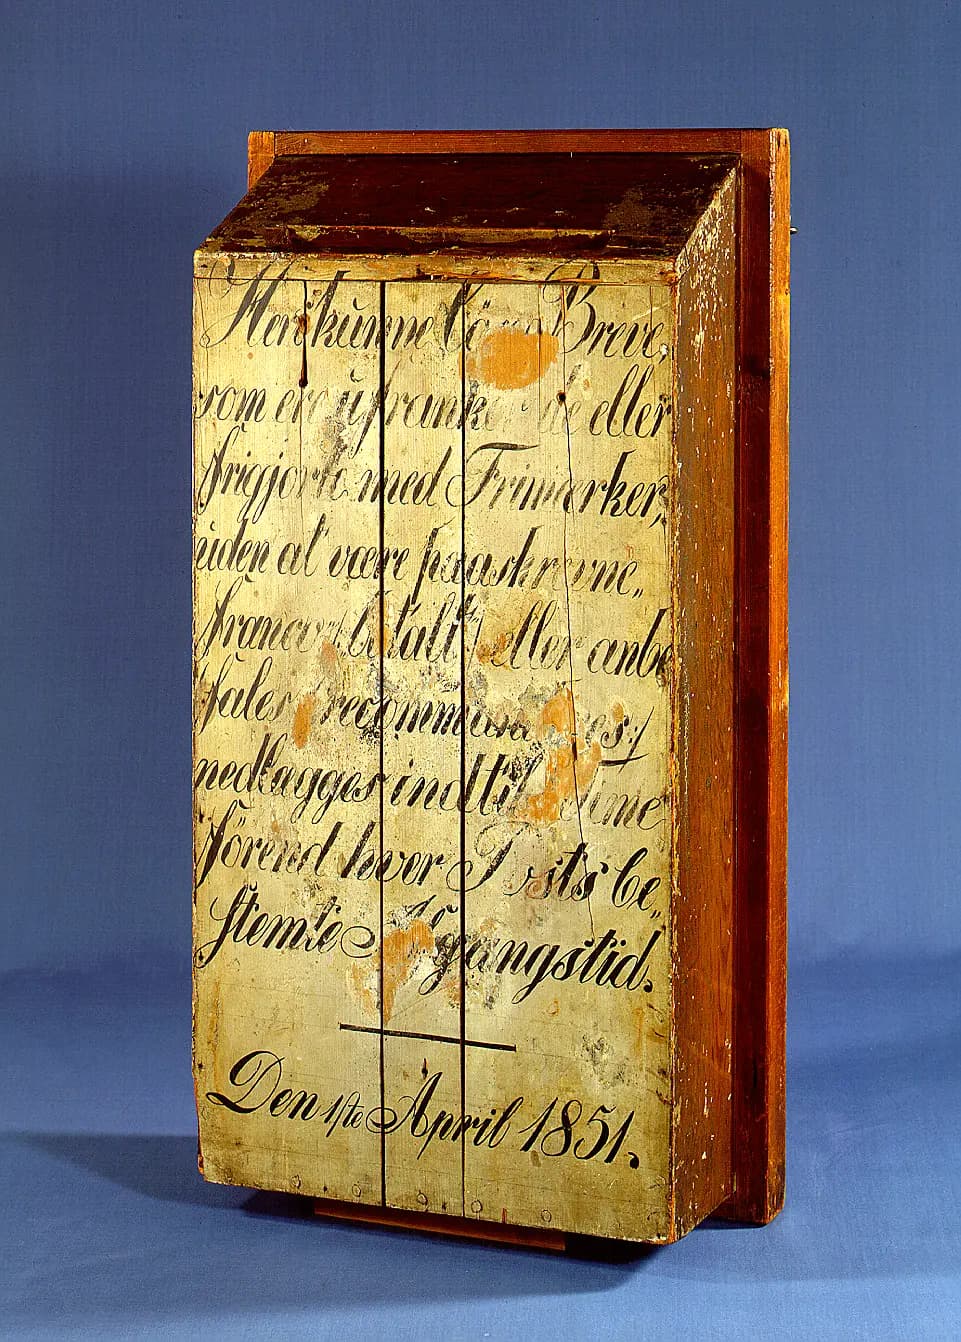 Heri kunne Breve,
som ere ufranke de eller
frigjorte med Frimærker,
uden at være paaskrevne
franco betalt eller anbe
fales recommanderes
nedlægges indtil Time
förend hver Posts be„
stemte Afgangstid.
Den 1ste April 1851.